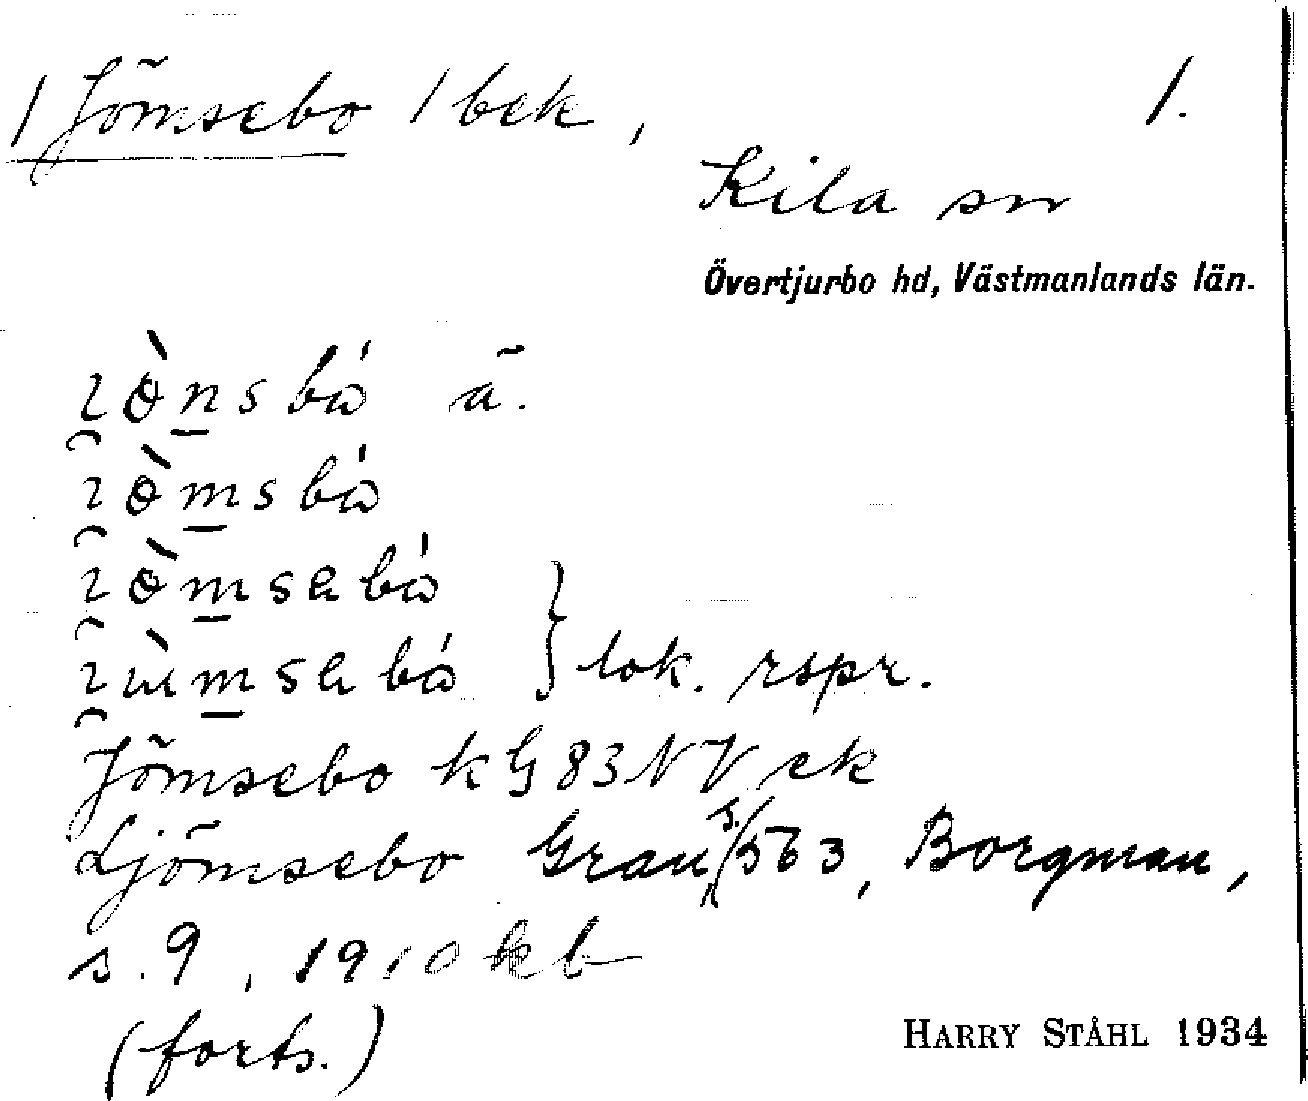 1 Jömsebo 1 bek, 1.
Kila sn
Övertjurbo hd, Västmanlands län.
ä.
} lok. rspr.
Jömsebo kG 83 NV ek
Ljömsebo Grau, s. 563, Borgman,
s. 9, 1910 kb
(forts.)
HARRY STÅHL 1934